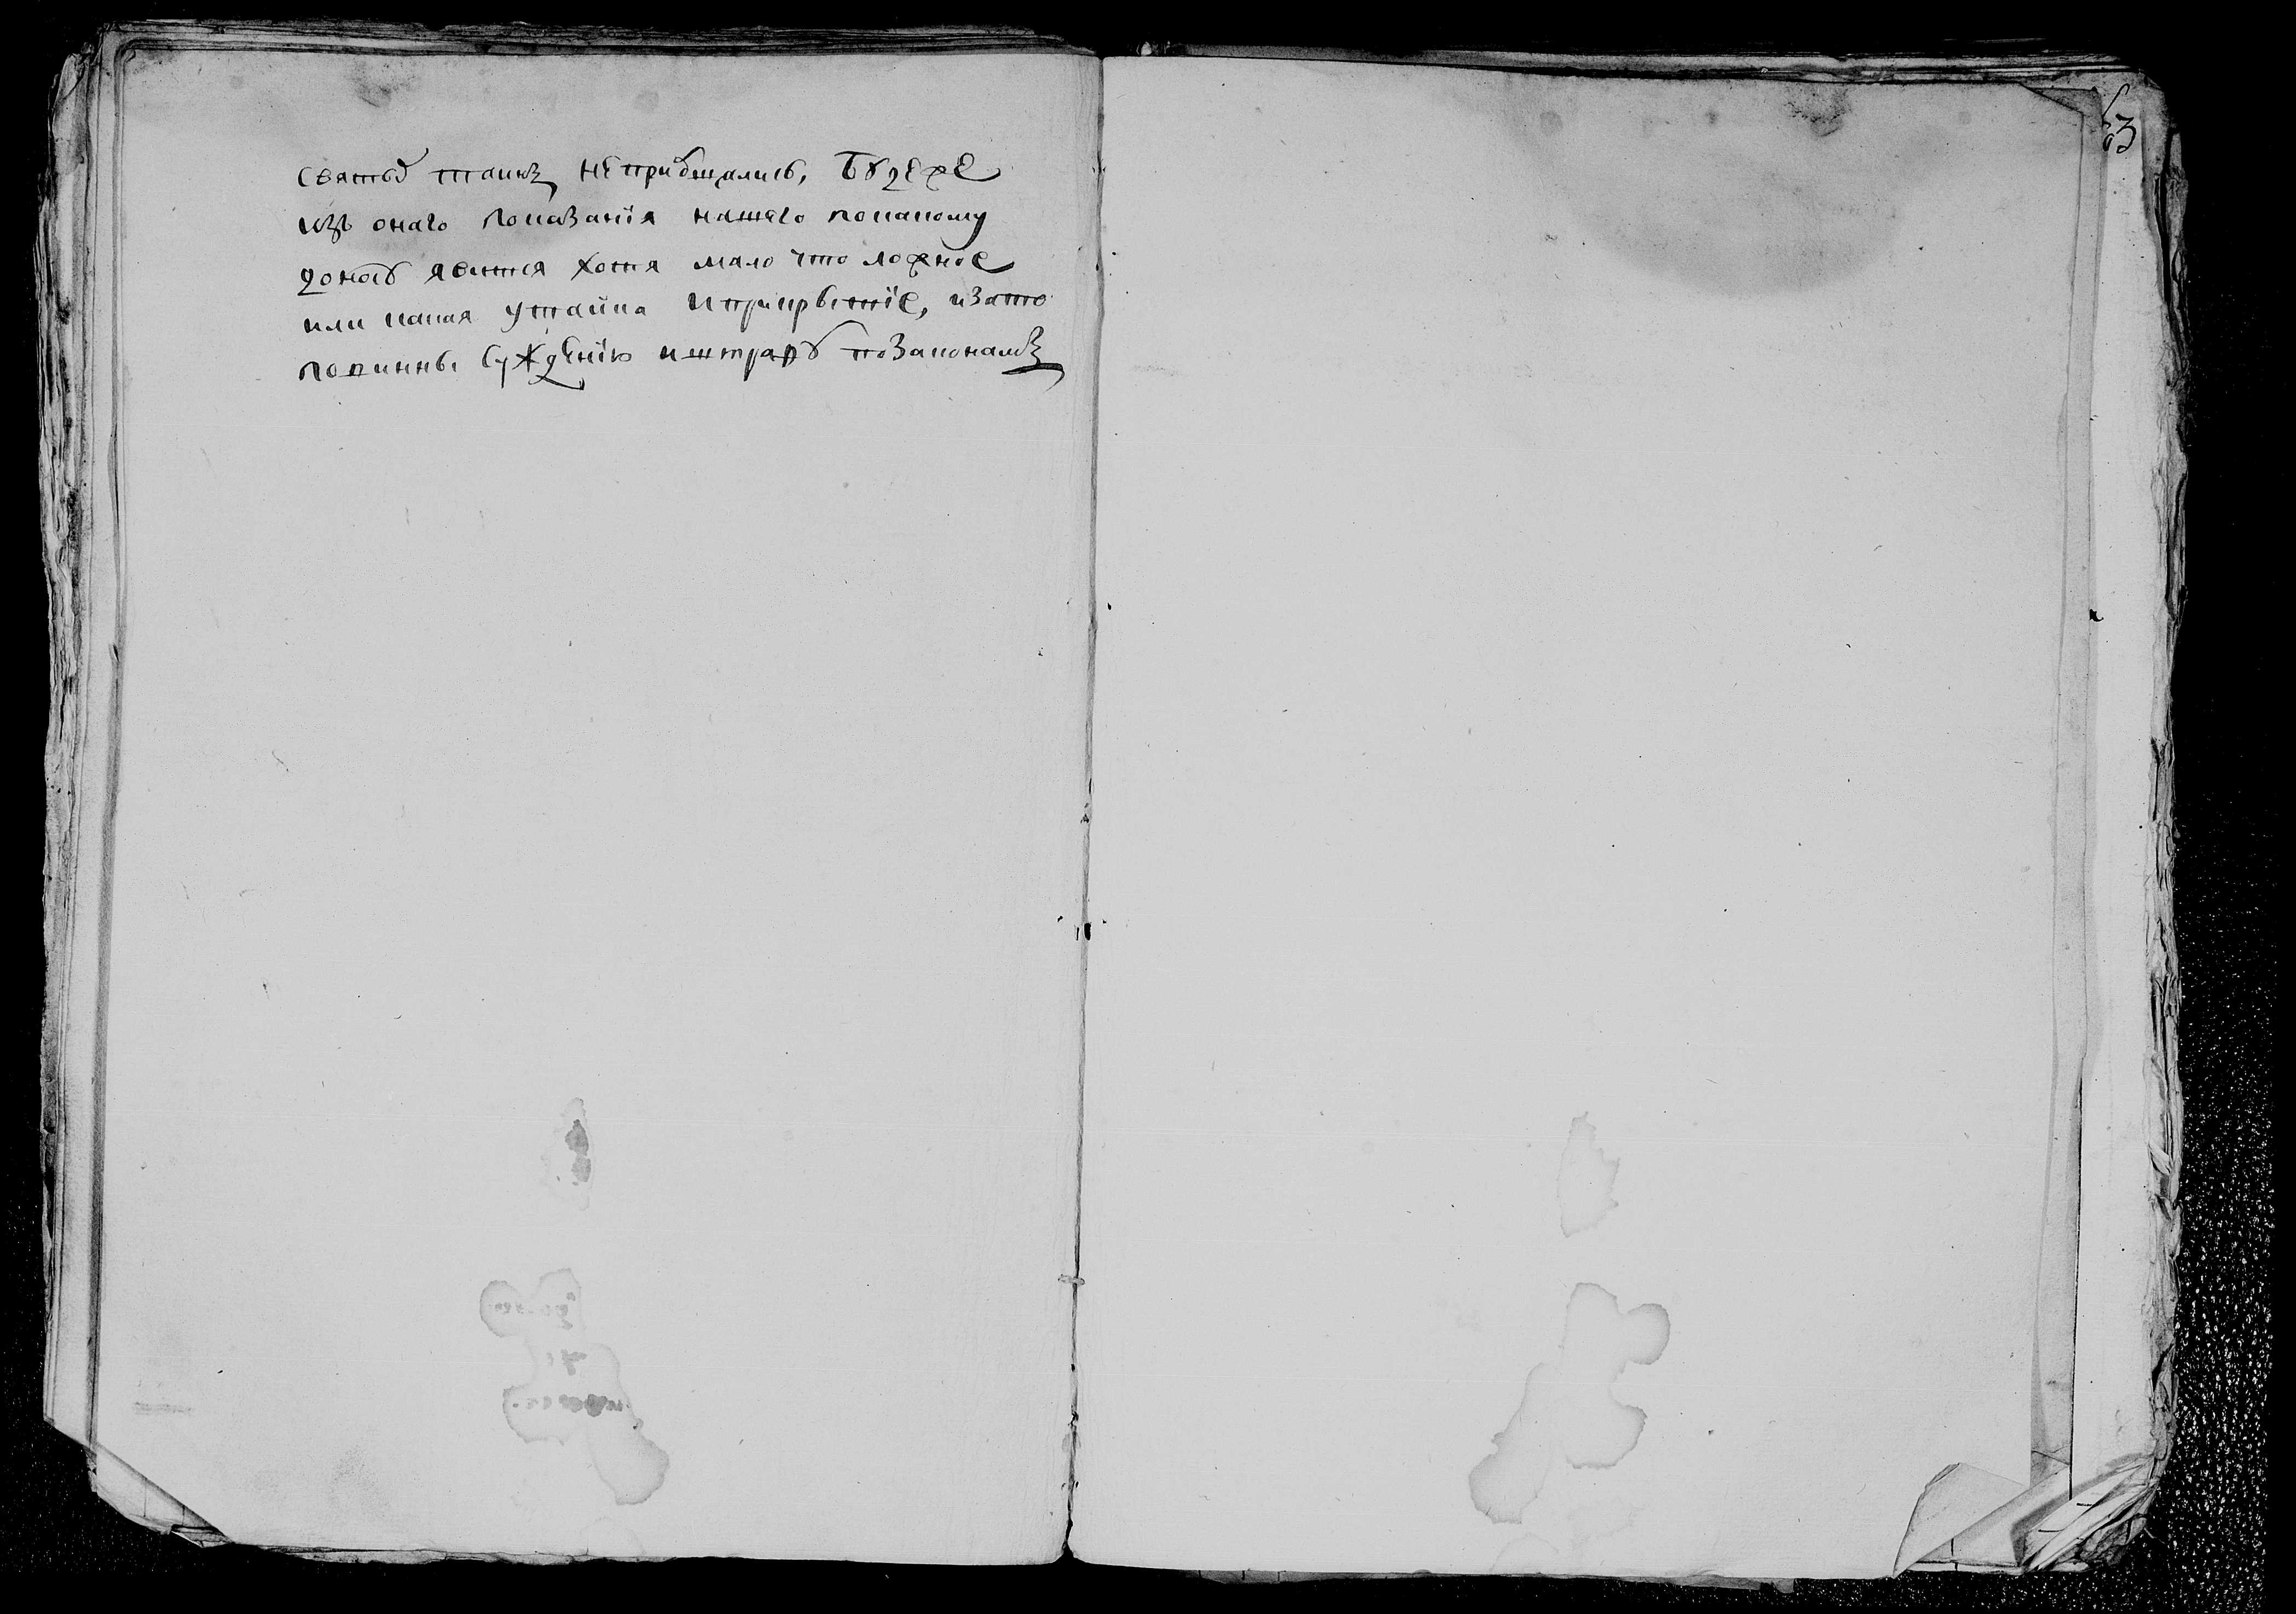 святыхъ таинъ неприобщались, Буде же
изъ онаго показанїя нашего покакому
доносу явится хотя мало что ложное
или какая утайка и прикрытїе, и зато
повинны суждению и штрафу по законамъ
63